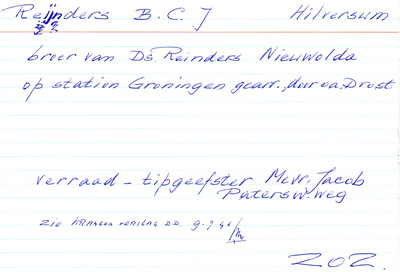 Reijnders B.C.J Hilversum
broer van Ds. Reinders Nieuwolda
op station Groningen gearr., door oa. Drost
verraad - tipgeefster Mevr. Jacob
Patersw.weg
zie KRANTEN VERSLAG D.D.
ZOZ.